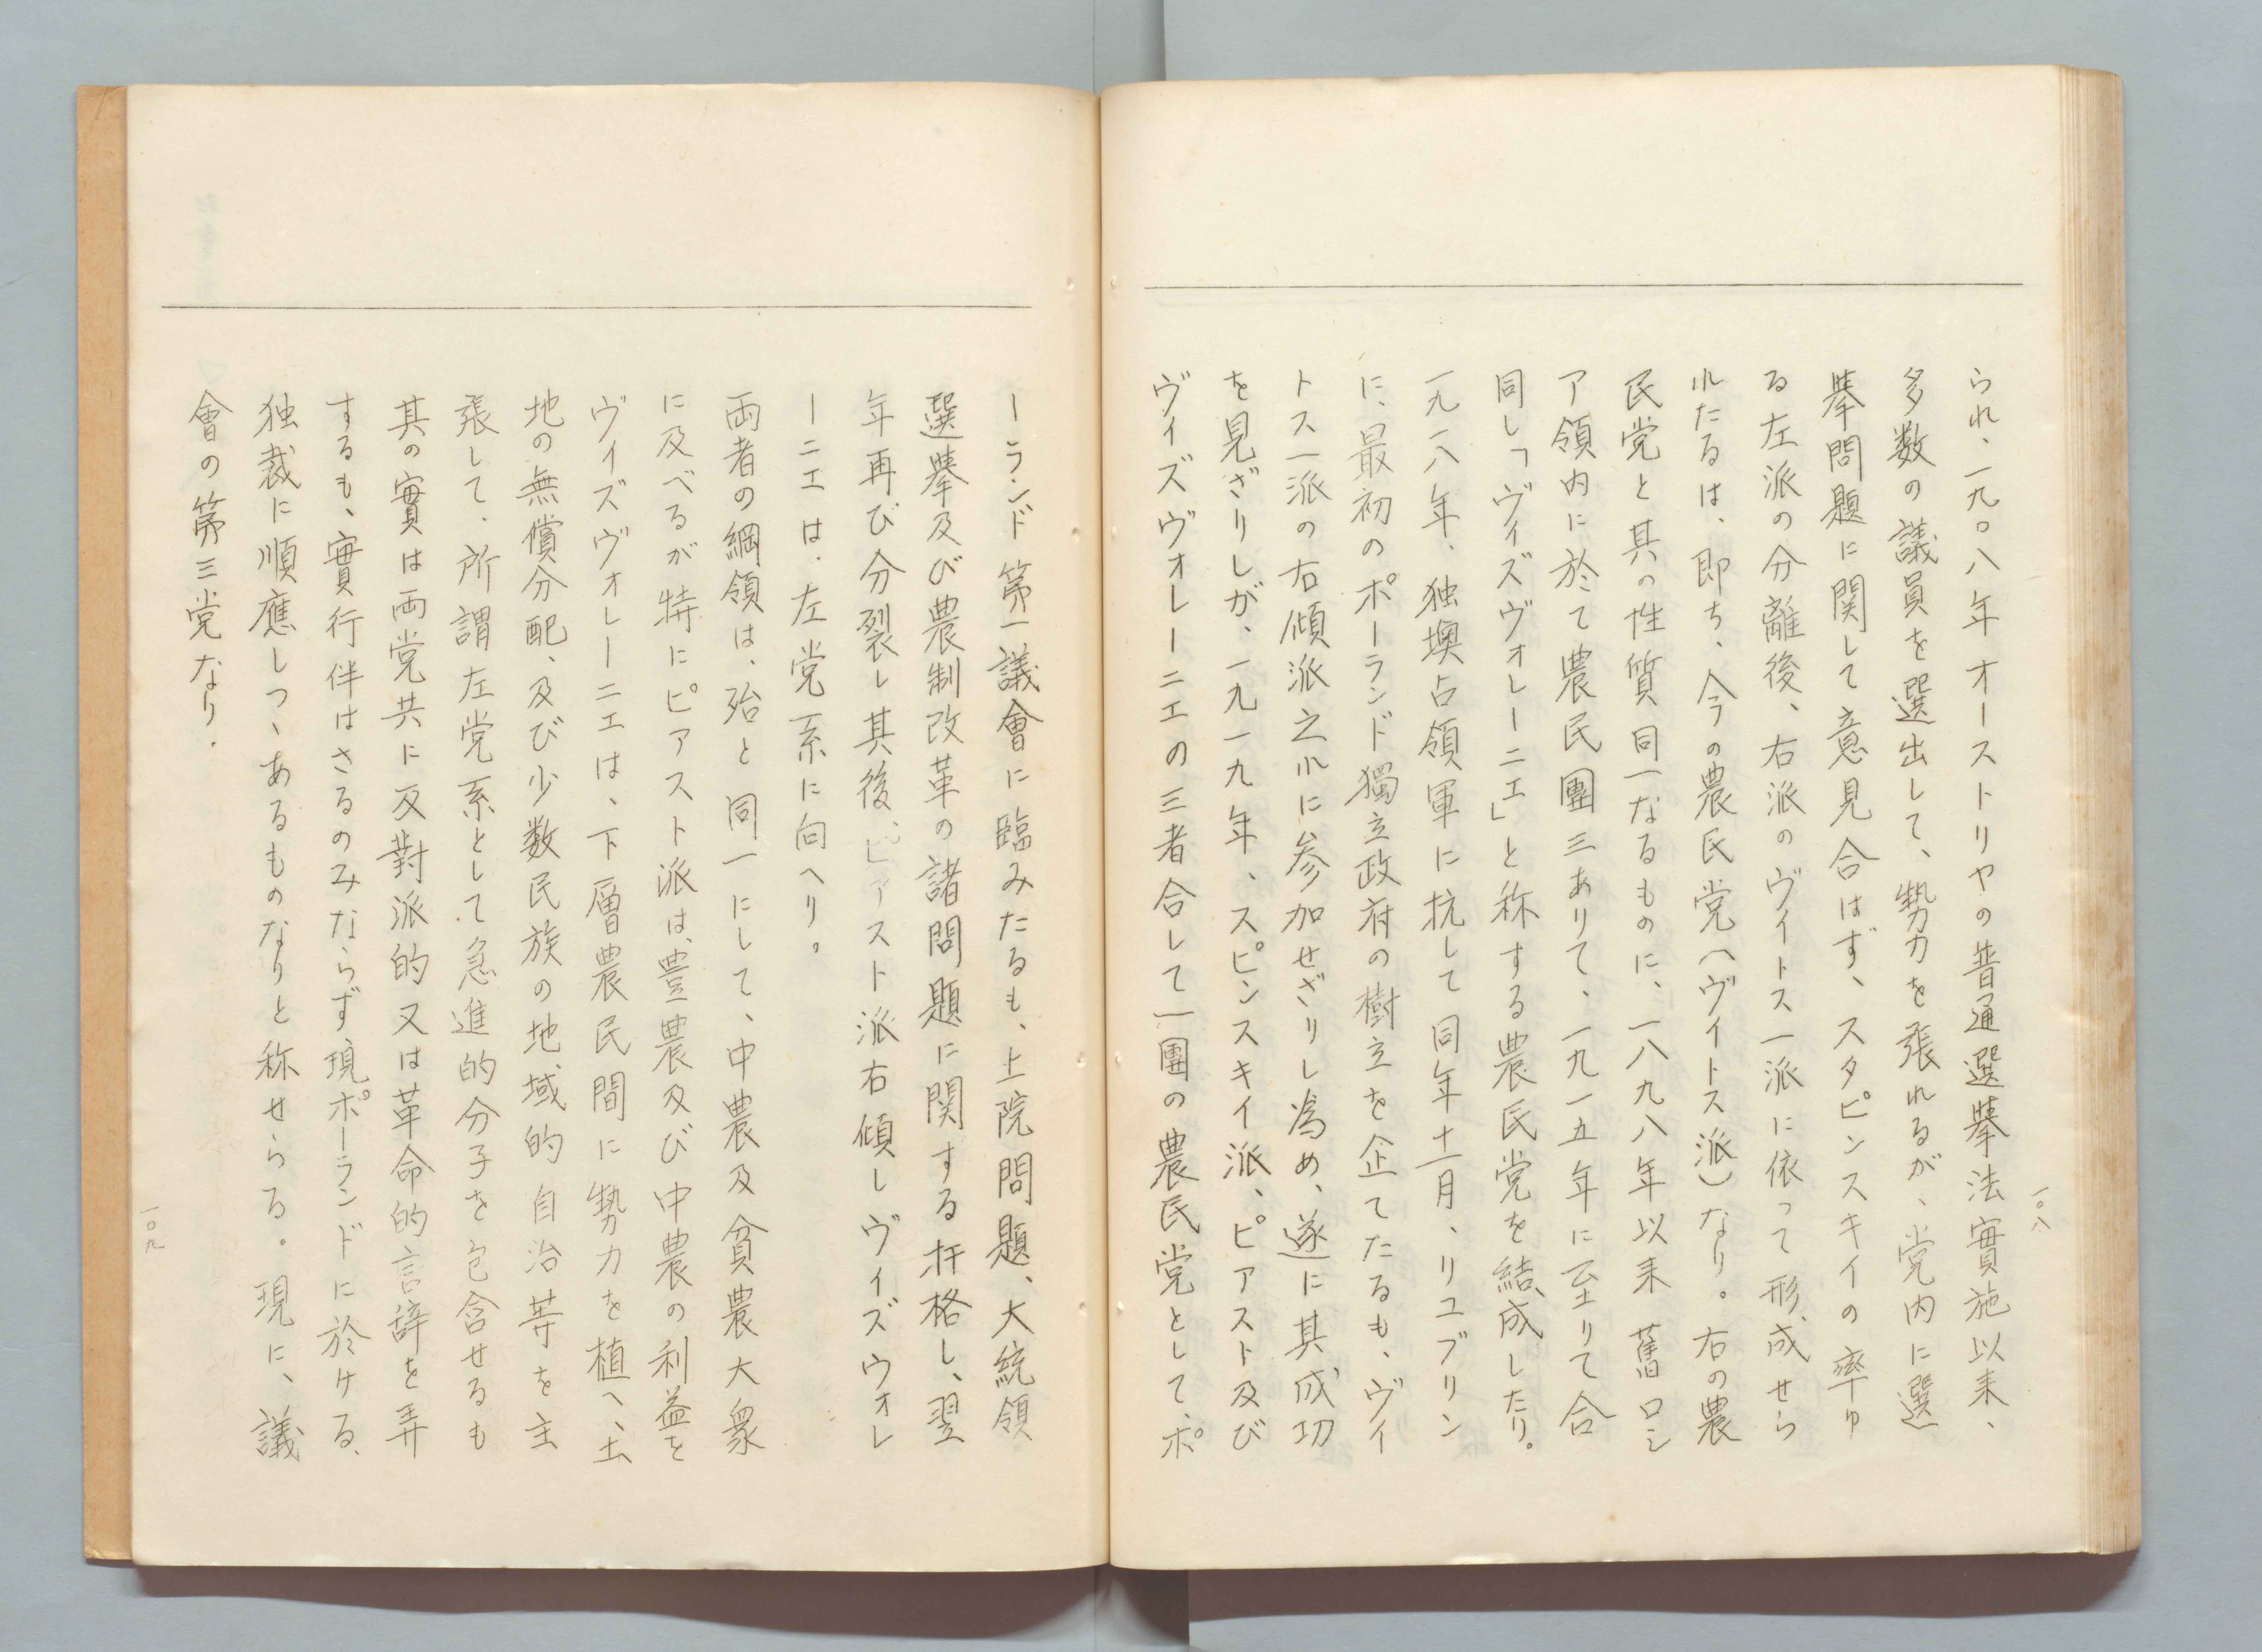 られ、一九〇八年オーストリヤの普通選挙法實施以来、
多数の議員を選出して、勢力を張れるが、党内に選
挙問題に関して意見合はず、スタピンスキイの率ゆ
る左派の分離後、右派のヴイトス一派に依って形成せら
れたるは、即ち、今の農民党（ヴイトス派）なり。右の農
民党と其の性質同一なるものに、一八九八年以来舊ロシ
ア領内に於て農民團三ありて、一九一五年に至りて合
同し「ヴィズヴォレーニエ」と称する農民党を結成したり。
一九一八年、独墺占領軍に抗して同年十一月、リユブリン
に、最初のポーランド獨立政府の樹立を企てたるも、ヴイ
トス一派の右傾派之れに参加せざりし為め、遂に其成功
を見ざりしが、一九一九年、スピンスキイ派、ピアスト及び
ヴィズヴォレーニエの三者合して一團の農民党として、ポ
一〇八
ーランド第一議會に臨みたるも、上院問題、大統領
選挙及び農制改革の諸問題に関する扞格し、翌
年再び分裂し其後、ピアスト派右傾しヴィズウォレ
ーニエは、左党系に向へり。
両者の綱領は、殆と同一にして、中農及貧農大衆
に及べるが特にピアスト派は、豊農及び中農の利益を
ヴィズヴォレーニエは、下層農民間に勢力を植へ、土
地の無償分配、及び少数民族の地域的自治等を主
張して、所謂左党系として急進的分子を包含せるも
其の實は両党共に反對派的又は革命的言辞を弄
するも、實行伴はさるのみならず、現ポーランドに於ける、
独裁に順應しつゝあるものなりと称せらる。現に、議
會の第三党なり.
一〇九